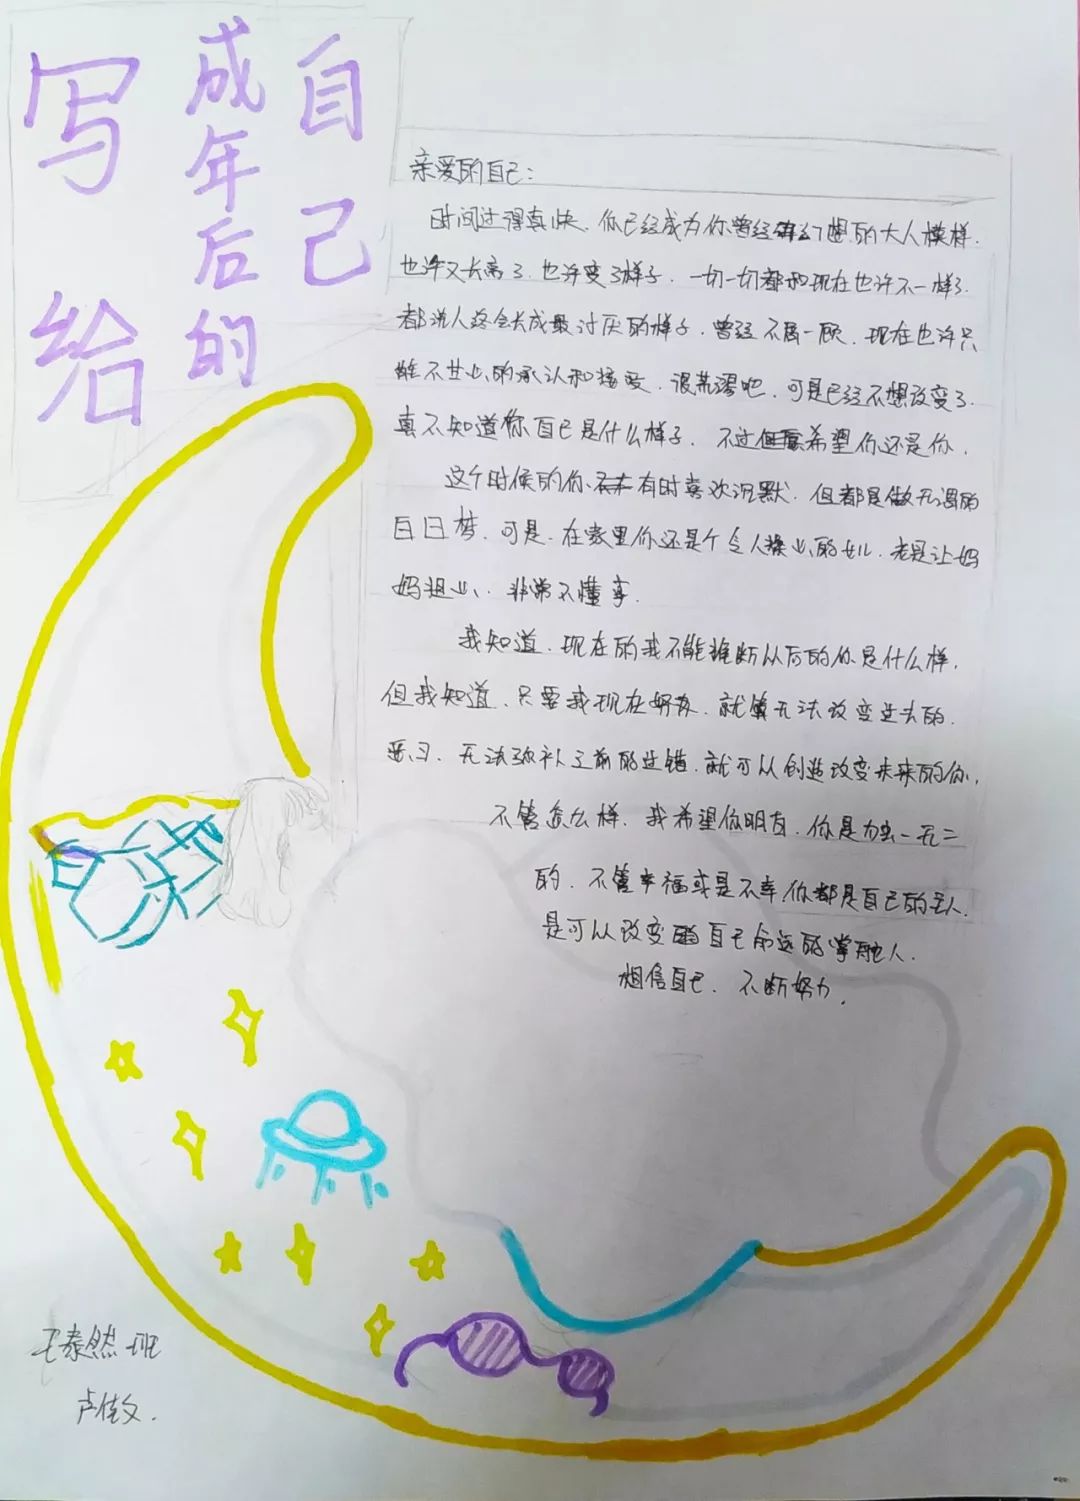 写给
成年后的
自己
亲爱的自己：
时间过得真快，你已经成为你曾经幻想的大人模样，
也许又长高了，也许变了样子，一切一切都和现在也许不一样了，
都说人终会长成最讨厌的样子，曾经不屑一顾，现在也许只
能不甘心的承认和接受，很荒谬吧，可是已经不想改变了，
真不知道你自己是什么样子，不过希望你还是你，
这个时候的你有时喜欢沉默，但都是做无谓的
白日梦，可是，在家里你还是个令人操心的女儿，老是让妈
妈担心，非常不懂事，
我知道，现在的我不能推断以后的你是什么样，
但我知道，只要我现在努力，就算无法改变过去的
恶习，无法弥补之前的过错，就可以创造改变未来的你，
不管怎么样，我希望你明白，你是独一无二
的，不管幸福或是不幸，你都是自己的主人，
是可以改变自己命运的掌舵人，
相信自己，不断努力，
王泰然班
卢佳文.